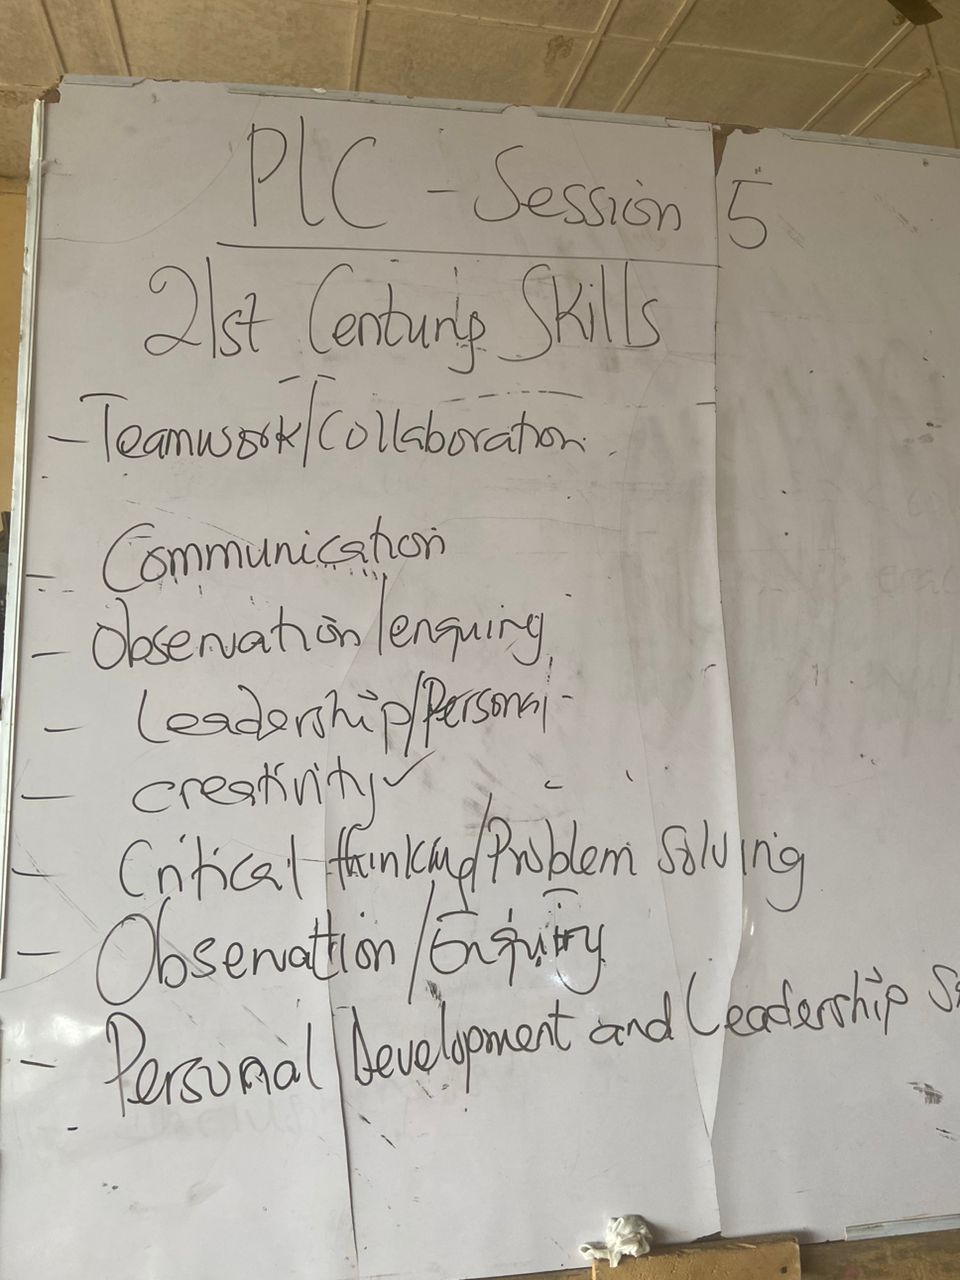 PLC - Session 5
21st Century Skills
- Teamwork/Collaboration.
- Communication
- Observation/enquiring
- Leadership/Personal
- Creativity ✓
- Critical thinking/Problem Solving
- Observation/Enquiry
- Personal Development and Leadership